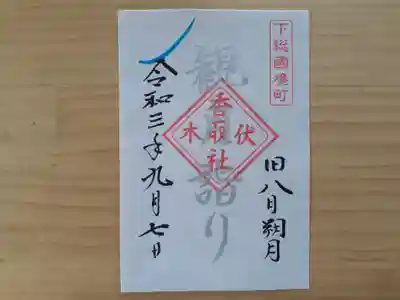 下総國境町
旧八月朔月
観月詣り
伏木
香取社
令和三年九月七日